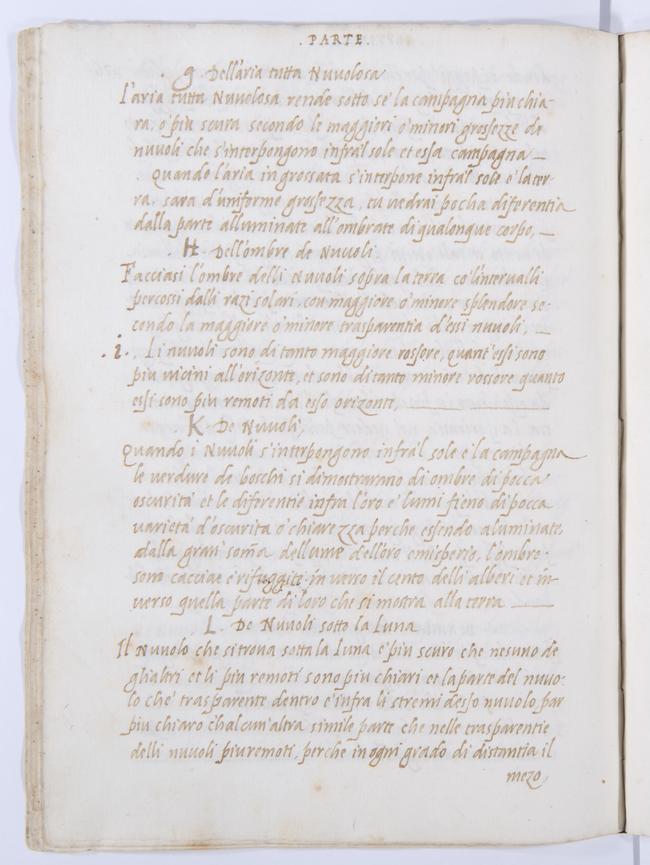 . PARTE.
. g Dell'aria tutta Nuvolosa
L'aria tutta Nuvolosa rende sotto se la campagna piu chia-
ra, o piu scura secondo le maggiori o' minori grossezze de
nuvoli che s'interpongono infra'l sole et essa campagna —
. Quando l'aria ingrossata s'interpone infra'l sole e' la ter-
ra, sara d'uniforme grossezza, tu vedrai pocha diferentia
dalla parte alluminate all'ombrate di qualonque corpo, —
H Dell'ombre de Nuvoli
Facciasi l'ombre delli Nuvoli sopra la terra co' l'intervalli
percossi dalli razi solari, con maggiore o' minore splendore se-
condo la maggiore o' minore trasparentia d'essi nuvoli, —
. i. . Li nuvoli sono di tanto maggiore rossore, quant'essi sono
piu vicini all'orizonte, et sono di tanto minore rossore quanto
essi sono piu remoti da esso orizonti,
K De Nuvoli,
Quando i Nuvoli s'interpongono infra'l sole e' la campagna
le verdure de boschi si dimostraranno di ombre di pocca
oscurita et le diferentie infra l'oro e' lumi fieno di pocca
varieta d'oscurita o' chiarezza perche essendo aluminate
dalla gran soma del lume dell'oro emisperio, l'ombre
sono cacciae e' rifuggite in verso il cento delli alberi et in-
verso quella parte di loro che si mostra alla terra —
L. De Nuvoli sotto la Luna
Il Nuvolo che si trova sotta la Luna e' piu scuro che nesuno de
ghialtri et li piu remoti sono piu chiari et la parte del nuvo-
lo che' trasparente dentro e' infra li stremi d'esso nuvolo par
piu chiaro ch'alcun'altra simile parte che nelle trasparentie
delli nuvoli piu remoti, perche in ogni grado di distantia il
mezo,